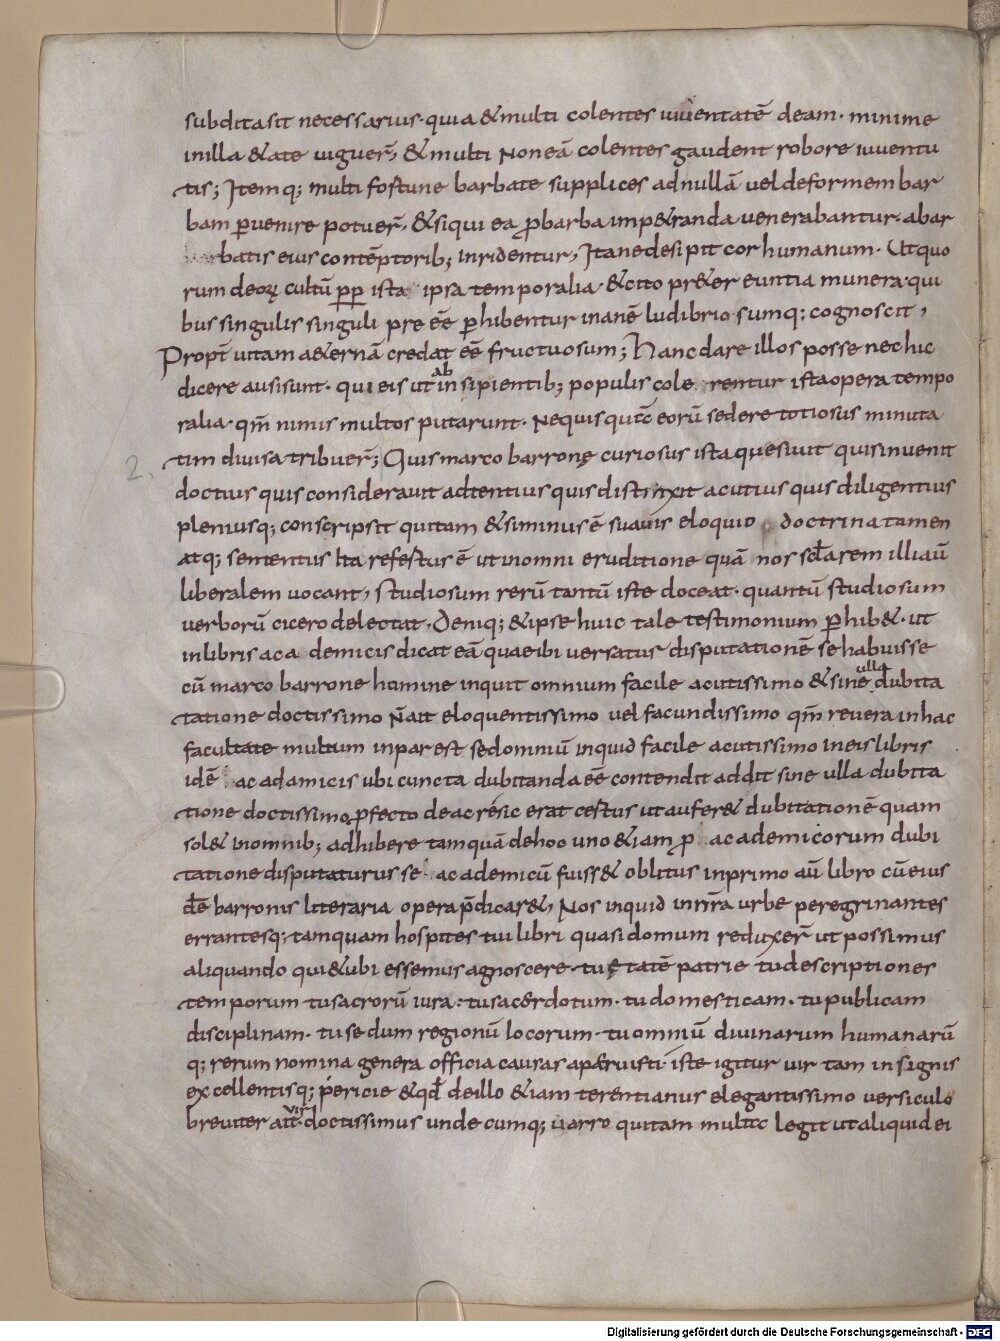 subditasit necessarius· quia &multi colentes iuuentatē deam· minime
inilla &ate uiguer̄, &multi Non eā colentes gaudent robore iuuentu
tis; Itemq; multi fortune barbate supplices adnullā uel deformem bar
bam ꝑuenire potuer̄, &siqui ea ꝓbarba imp&randa uenerabantur· abar
batis eius contēptorib; inridentur, Itane desipit cor humanum· Ut quo
rum deoꝝ cultū ꝓꝑ ista ipsa temporalia· &cito pr&er euntia munera· qui
bus singulis singuli pre eē ꝑhibentur inanē ludibrio sumq; cognoscit,
Propt̄ uitam a&ernā credat eē fructuosum; Hanc dare illos posse nec hic
dicere ausi sunt· qui eis ut ab insipientib; populis cole rentur ista opera tempo
ralia· qm̄ nimis multos putarunt· Nequisquā eorū sedere totiosus minuta
2. tim diuisa tribuer̄; Quis marco barronę curiosus ista quesiuit quis inuenit
doctius quis considerauit adtentius quis distinxit acutius quis diligentius
pleniusq; conscripsit qui tam &si minus ē suauis eloquio doctrina tamen
atq; sententiis ita refertus ē ut inomni eruditione quā nos sc̄larem illi aū
liberalem uocant, studiosum rerū tantū iste doceat· quantū studiosum
uerborū cicero delectat· Deniq; &ipse huic tale testimonium ꝑhib&· ut
inlibris aca demicis dicat eā quae ibi uersatur disputationē se habuisse
cū marco barrone homine inquit omnium facile acutissimo &sine ulla dubita
tatione doctissimo N̄ ait eloquentissimo uel facundissimo qm̄ reuera inhac
facultate multum inpar est sed omniū inquid facile acutissimo ineis libris
idē acadamicis ubi cuncta dubitanda eē contendit addit sine ulla dubita
tione doctissimo, ꝓfecto de ac re sic erat certus ut aufer& dubitationē quam
sol& inomnib; adhibere tamquā de hoc uno &iam ꝓ academicorum dubi
tatione disputaturus se academicū fuiss& oblitus inprimo aū libro cū eius
dē barronis literaria opera p̄dicar&, Nos inquid innr̄a urbe peregrinantes
errantesq; tamquam hospites tui libri quasi domum reduxer̄ ut possimus
aliquando qui &ubi essemus agnoscere· tu ętatē patrie tu descriptiones
temporum tu sacrorū iura· tu sacerdotum· tu domesticam· tu publicam
disciplinam· tu sedum regionū locorum· tu omniū diuinarum humanarū
q; rerum nomina genera officia causas aperuisti· iste igitur uir tam insignis
excellentisq; pericie &qđ de illo &iam terentianus elegantissimo uersiculo
breuiter ait· uir doctissimus undecumq; uarro qui tam multa legit ut aliquid ei
Digitalisierung gefördert durch die Deutsche Forschungsgemeinschaft - DFG